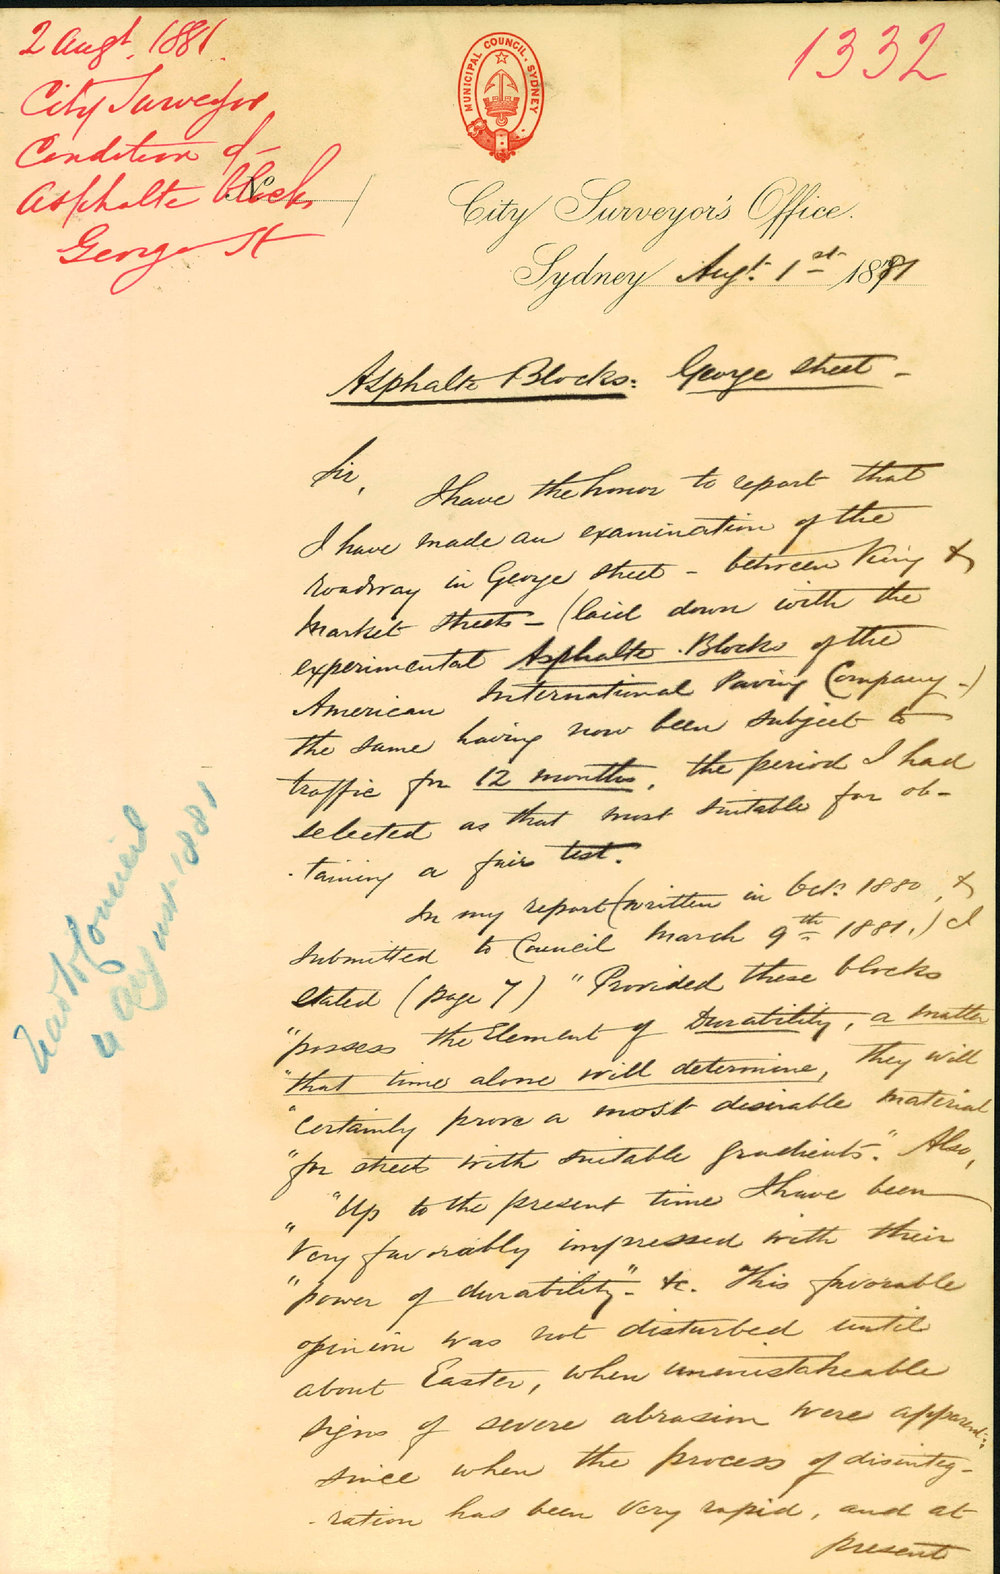 2 Augt. 1881
City Surveyor
Condition of
Asphalte blocks
George St
1332
MUNICIPAL COUNCIL. SYDNEY
No
City Surveyor's Office.
Sydney Augt. 1st 1881
Asphalte Blocks: George Street -
Sir,
I have the honor to report that
I have made an examination of the
roadway in George Street - between King &
Market Streets - (laid down with the
experimental Asphalte Blocks of the
American International Paving Company -)
the same having now been subject to
traffic for 12 months, the period I had
selected as that most suitable for ob-
-taining a fair test.
In my report (written in Octr. 1880, &
submitted to Council March 9th 1881,) I
stated (page 7) "Provided these blocks
"possess the Element of Durability, a matter
"that time alone will determine, they will
"certainly prove a most desirable material
"for streets with suitable gradients." Also,
"Up to the present time I have been
"very favorably impressed with their
"power of durability"- &c. This favorable
opinion was not disturbed until
about Easter, when unmistakeable
signs of severe abrasion were apparent:
since when the process of disinteg-
-ration has been very rapid, and at
present
Read to Council
4 August 1881